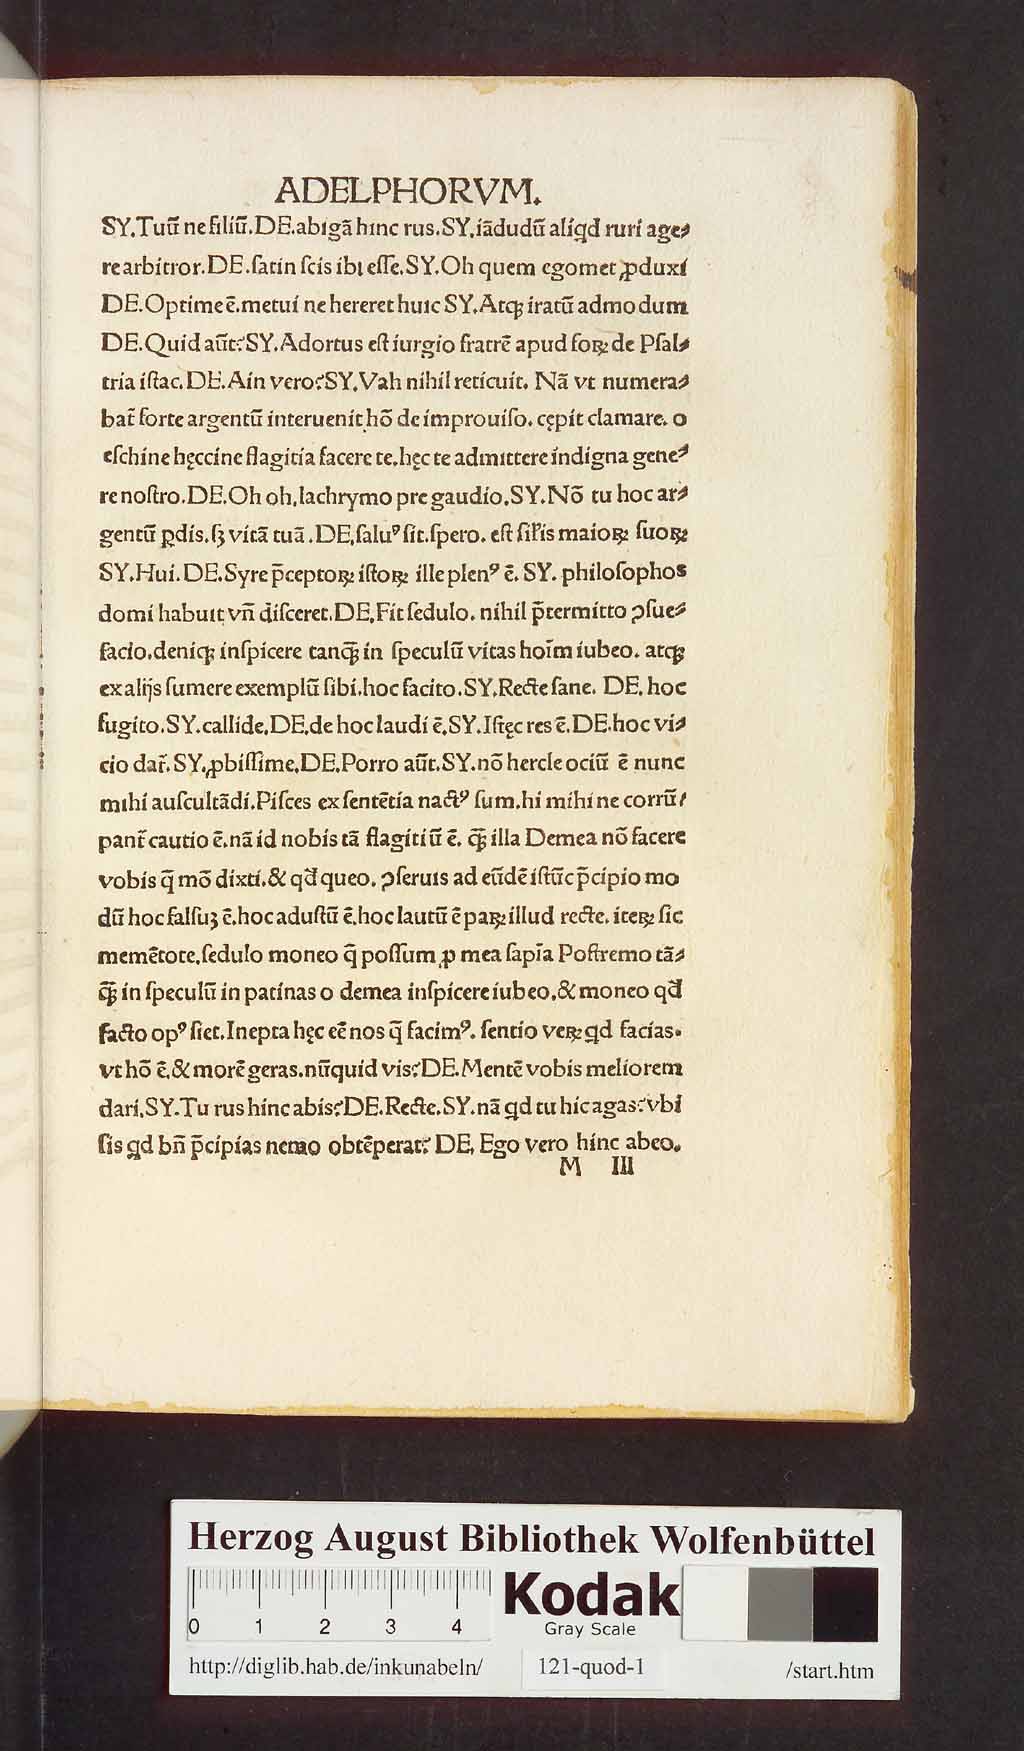 ADELPHORVM.
SY.Tuū ne filiū.DE.abigā hinc rus.SY.iādudū aliꝗd ruri age⸗
re arbitror.DE.ſatin ſcis ibi eſſe.SY.Oh quem egomet ꝓduxi
DE.Optime ē.metui ne hereret huic SY.Atqꝫ iratū admodum
DE.Quid aūt?SY.Adortus eſt iurgio fratrē apud foꝝ de Pſal⸗
tria iſtac.DE.Ain vero?SY.Vah nihil reticuit. Nā vt numera⸗
bat̄ forte argentū interuenit hō de improuiſo. cępit clamare. o
eſchine hęccine flagitia facere te.hęc te admittere indigna gene⸗
re noſtro.DE.Oh oh.lachrymo pre gaudio.SY.Nō tu hoc ar⸗
gentū ꝑdis.ſꝫ vitā tuā.DE.ſaluꝰ ſit.ſpero. eſt ſil̄is maioꝝ ſuoꝝ
SY.Hui.DE.Syre p̄ceptoꝝ iſtoꝝ ille plenꝰ ē. SY. philoſophos
domi habuit vn̄ diſceret.DE.Fit ſedulo. nihil p̄termitto ꝯſue⸗
facio.deniqꝫ inſpicere tanqꝫ̄ in ſpeculū vitas hoīm iubeo. atqꝫ
ex alijs ſumere exemplū ſibi.hoc facito.SY.Recte ſane. DE. hoc
fugito.SY.callide.DE.de hoc laudi ē.SY.Iſtęc res ē.DE.hoc vi⸗
cio dat̄.SY.ꝓbiſſime.DE.Porro aūt.SY.nō hercle ociū ē nunc
mihi auſcultādi.Piſces ex ſentētia nactꝰ ſum.hi mihi ne corrū/
pant̄ cautio ē.nā id nobis tā flagitiū ē. qꝫ̄ illa Demea nō facere
vobis q̄ mō dixti.& qd̄ queo. ꝯſeruis ad eūdē iſtūc p̄cipio mo
dū hoc falſuꝫ ē.hoc aduſtū ē.hoc lautū ē paꝝ illud recte. iteꝝ ſic
memētote.ſedulo moneo q̄ poſſum ꝓ mea ſapīa Poſtremo tā⸗
qꝫ̄ in ſpeculū in patinas o demea inſpicere iubeo.& moneo qd̄
facto opꝰ ſiet.Inepta hęc eē nos q̄ facimꝰ. ſentio veꝝ ꝗd facias.
vt hō ē.& morē geras.nūquid vis?DE.Mentē vobis meliorem
dari.SY.Tu rus hinc abis?DE.Recte.SY.nā ꝗd tu hic agas?vbi
ſis ꝗd bn̄ p̄cipias nemo obtēperat? DE. Ego vero hinc abeo.
M III
Herzog August Bibliothek Wolfenbüttel
0 1 2 3 4
Kodak
Gray Scale
http://diglib.hab.de/inkunabeln/ 121-quod-1 /start.htm